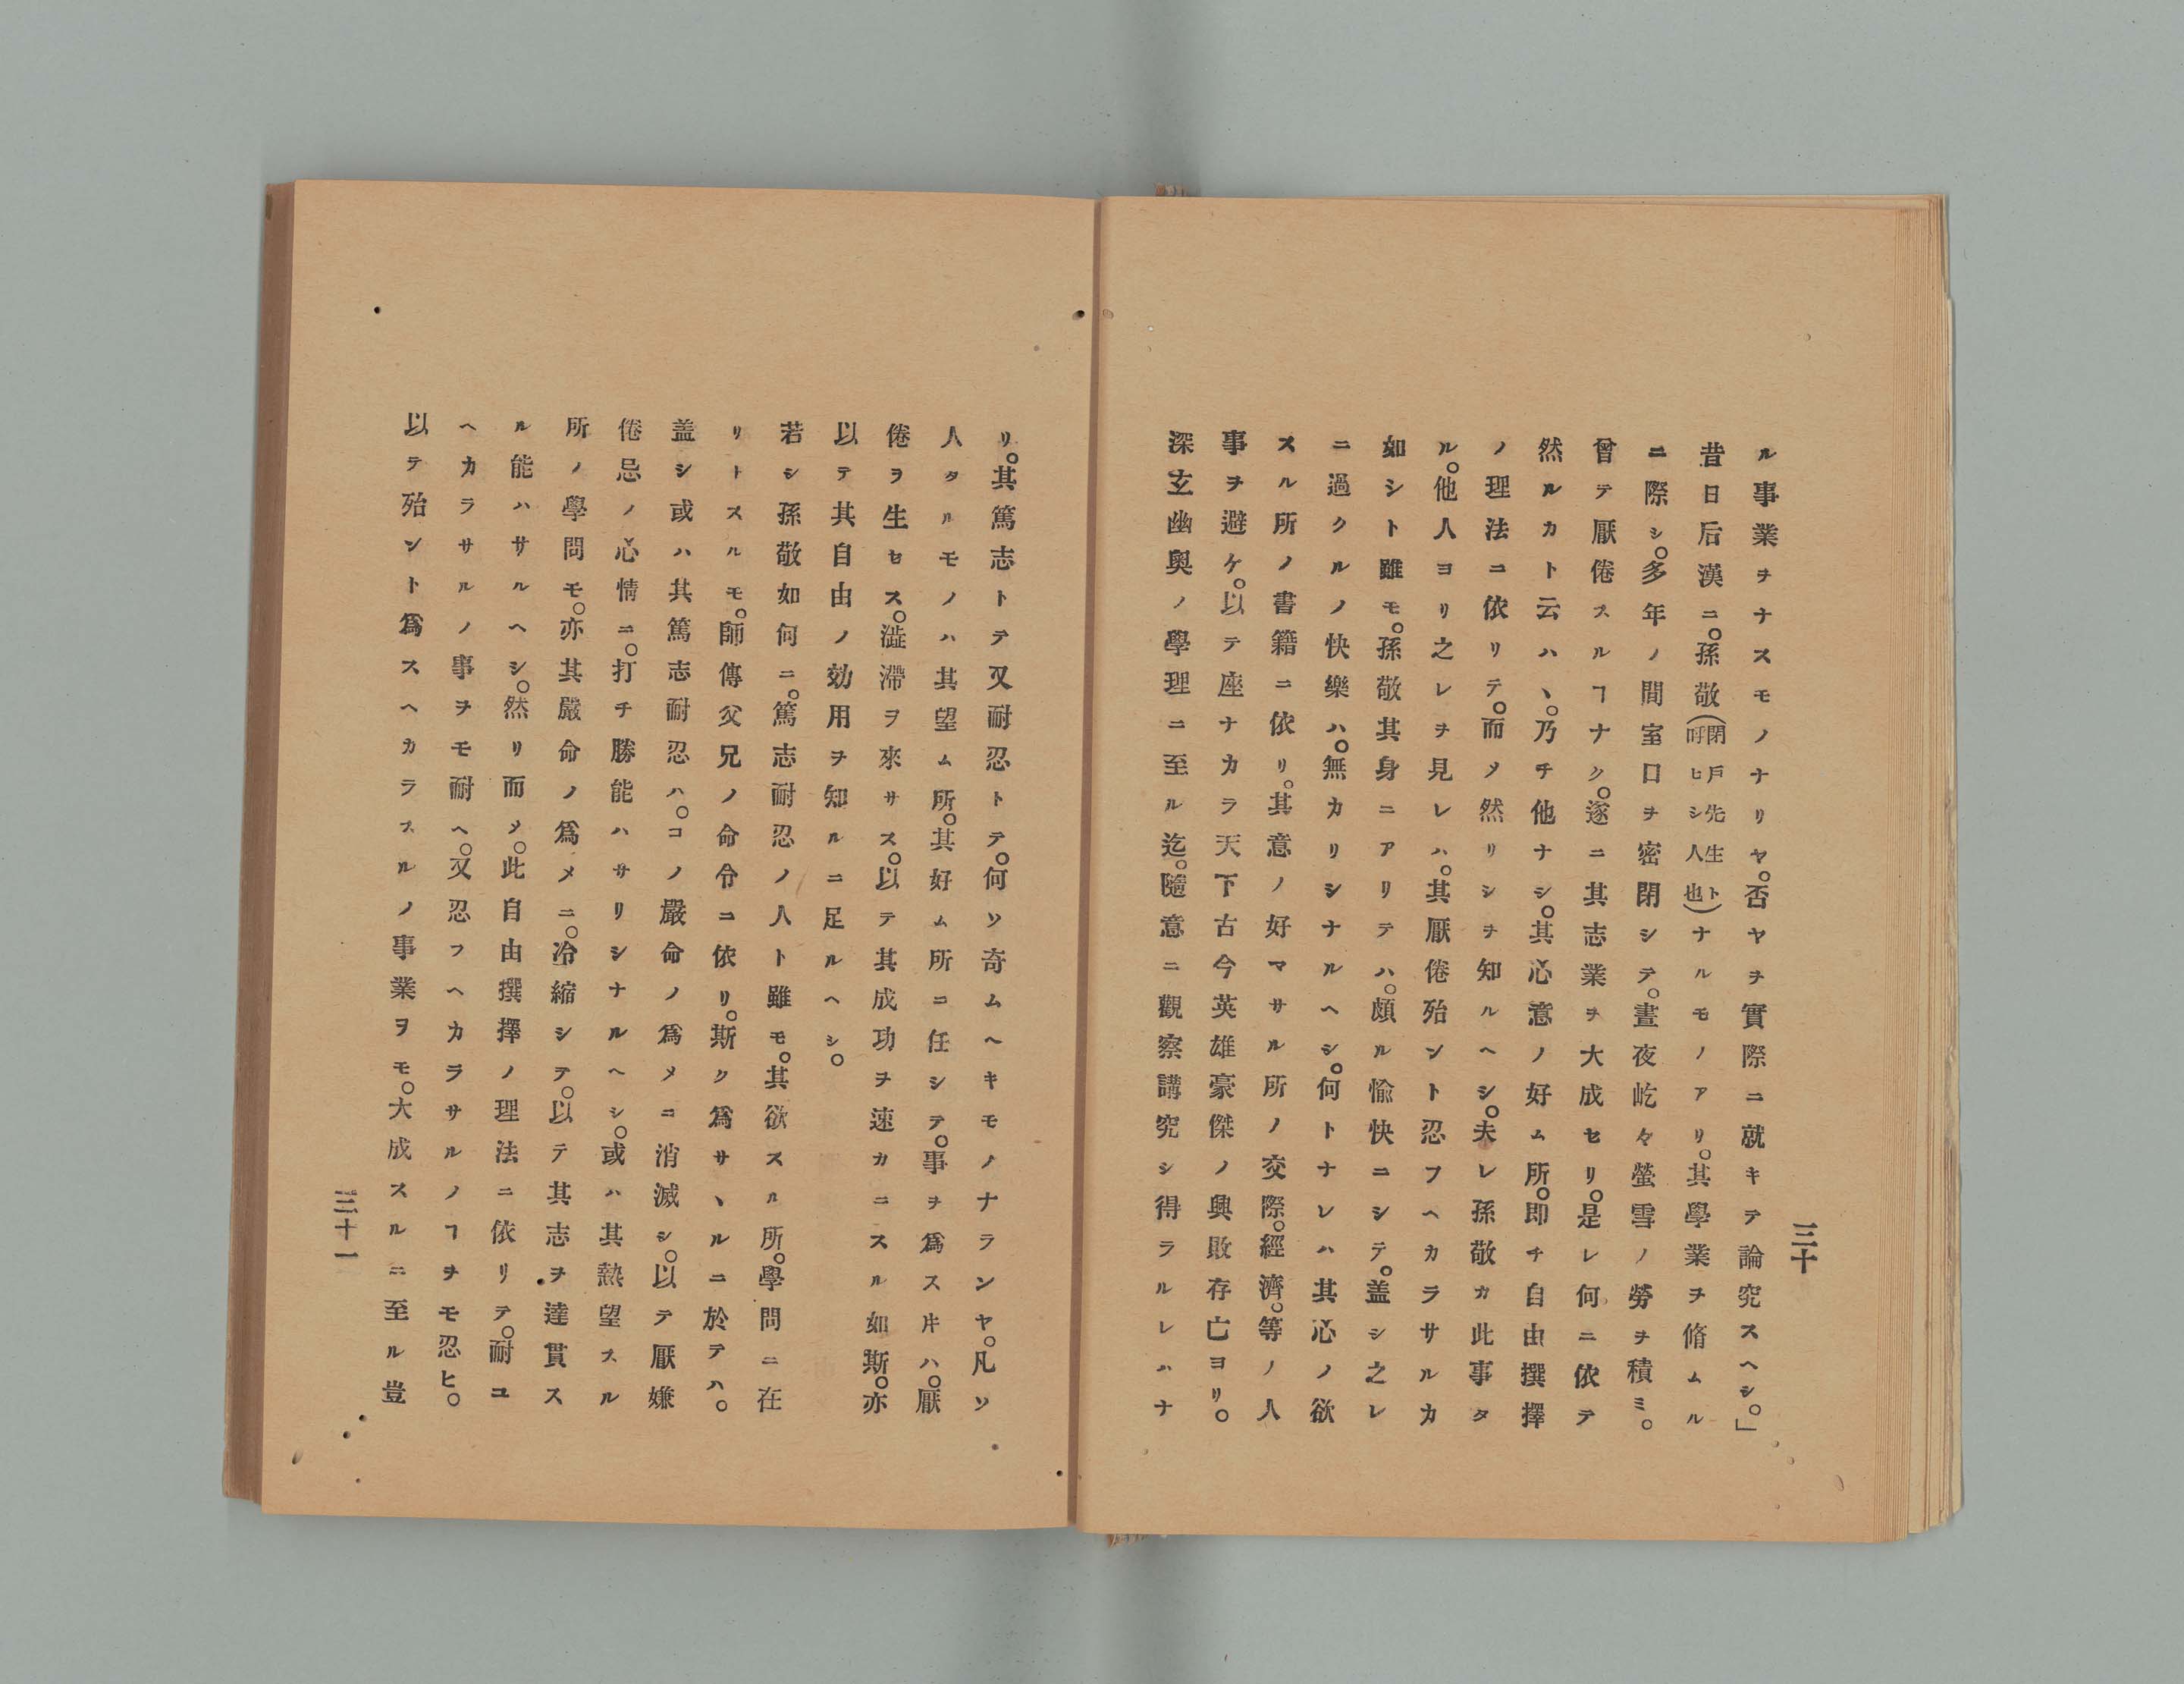 三十
ル事業ヲナスモノナリヤ。否ヤヲ實際ニ就キテ論究スヘシ。」
昔日后漢ニ。孫敬(閉戸先生ト呼ヒシ人也)ナルモノアリ。其學業ヲ脩ムル
ニ際シ。多年ノ間室口ヲ密閉シテ。晝夜屹々螢雪ノ勞ヲ積ミ。
曾テ厭倦スルヿナク。遂ニ其志業ヲ大成セリ。是レ何ニ依テ
然ルカト云ハヽ。乃チ他ナシ。其心意ノ好ム所。即チ自由撰擇
ノ理法ニ依リテ。而メ然リシヲ知ルヘシ。夫レ孫敬カ此事タ
ル。他人ヨリ之レヲ見レハ。其厭倦殆ント忍フヘカラサルカ
如シト雖モ。孫敬其身ニアリテハ。頗ル愉快ニシテ。盖シ之レ
ニ過クルノ快樂ハ。無カリシナルヘシ。何トナレハ其心ノ欲
スル所ノ書籍ニ依リ。其意ノ好マサル所ノ交際。經濟。等ノ人
事ヲ避ケ。以テ座ナカラ天下古今英雄豪傑ノ興敗存亡ヨリ。
深玄幽奥ノ學理ニ至ル迄。隨意ニ觀察講究シ得ラルレハナ
リ。其篤志トテ又耐忍トテ。何ソ奇ムヘキモノナランヤ。凡ソ
人タルモノハ其望ム所。其好ム所ニ任シテ。事ヲ爲ストキハ。厭
倦ヲ生セス。澁滯ヲ來サス。以テ其成功ヲ速カニスル如斯。亦
以テ其自由ノ効用ヲ知ルニ足ルヘシ。
若シ孫敬如何ニ。篤志耐忍ノ人ト雖モ。其欲スル所。學問ニ在
リトスルモ。師傳父兄ノ命令ニ依リ。斯ク爲サヽルニ於テハ。
盖シ或ハ其篤志耐忍ハ。コノ嚴命ノ爲メニ消滅シ。以テ厭嫌
倦忌ノ心情ニ。打チ勝能ハサリシナルヘシ。或ハ其熱望スル
所ノ學問モ。亦其嚴命ノ爲メニ。冷縮シテ。以テ其志ヲ達貫ス
ル能ハサルヘシ。然リ而メ。此自由撰擇ノ理法ニ依リテ。耐ユ
ヘカラサルノ事ヲモ耐ヘ。又忍フヘカラサルノヿヲモ忍ヒ。
以テ殆ント爲スヘカラスルノ事業ヲモ。大成スルニ至ル豈
三十一